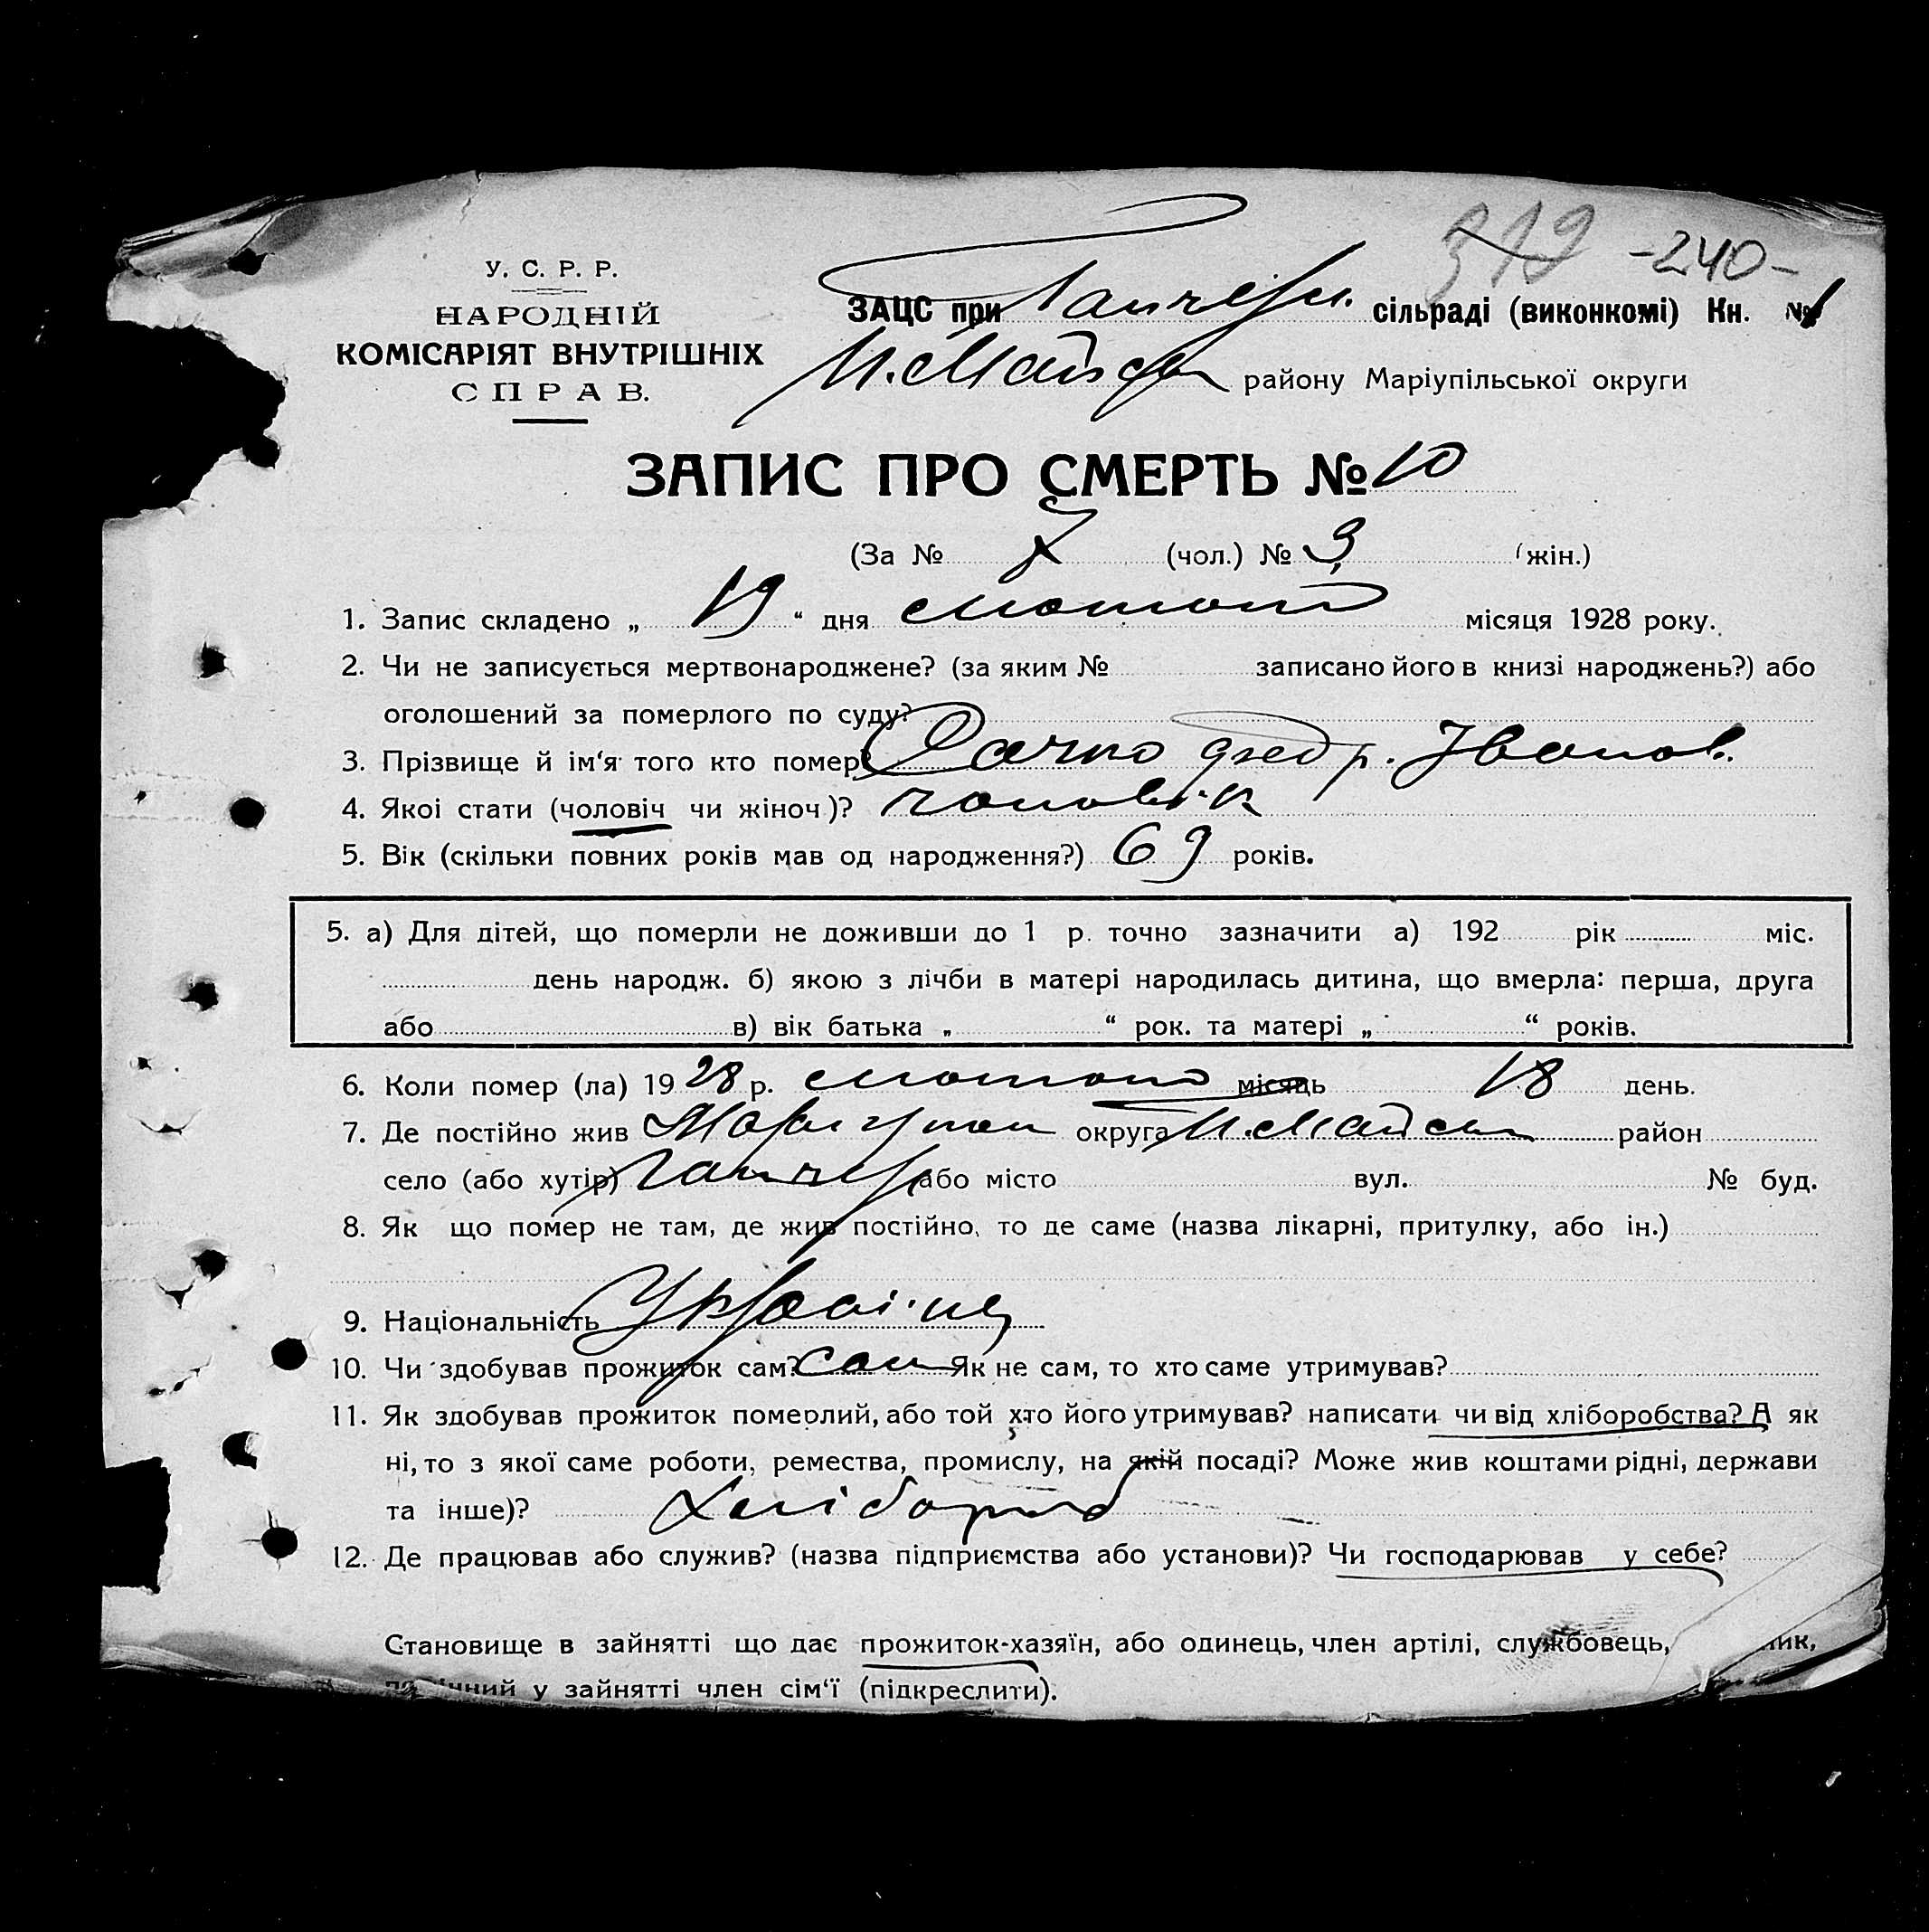 312 -240-
У. С. Р. Р.
НАРОДНІЙ
КОМІСАРІЯТ ВНУТРІШНІХ
СПРАВ.
ЗАЦС при сільраді (виконкомі) Кн. № 1
району Маріупільської округи
ЗАПИС ПРО СМЕРТЬ № 10
(За № 7 (чол.) № 3 (жін.)
1. Запис складено „ 19 “ дня лютого місяця 1928 року.
2. Чи не записується мертвонароджене? (за яким № записано його в книзі народжень?) або
оголошений за померлого по суду?
3. Прізвище й ім‘я того кто помер? Іванов.
4. Якої стати (чоловіч чи жіноч)? чоловік
5. Вік (скільки повних років мав од народження?) 69 років.
5. а) Для дітей, що померли не доживши до 1 р. точно зазначити а) 192 рік міс.
день народж. б) якою з лічби в матері народилась дитина, що вмерла: перша, друга
або в) вік батька „ “ рок. та матері „ “ років.
6. Коли помер (ла) 1928 р. лютого місяць 18 день.
7. Де постійно жив Маріупол округа район
село (або хутір) або місто вул. № буд.
8. Як що помер не там, де жив постійно, то де саме (назва лікарні, притулку, або ін.)
9. Національність Українец
10. Чи здобував прожиток сам? сам Як не сам, то хто саме утримував?
11. Як здобував прожиток померлий, або той хто його утримував? написати чи від хліборобства? А як
ні, то з якої саме роботи, ремества, промислу, на якій посаді? Може жив коштами рідні, держави
та інше)? Хлібороб
12. Де працював або служив? (назва підприємства або установи)? Чи господарював у себе?
Становище в зайнятті що дає прожиток-хазяїн, або одинець, член артілі, службовець,
у зайнятті член сім‘ї (підкреслити).